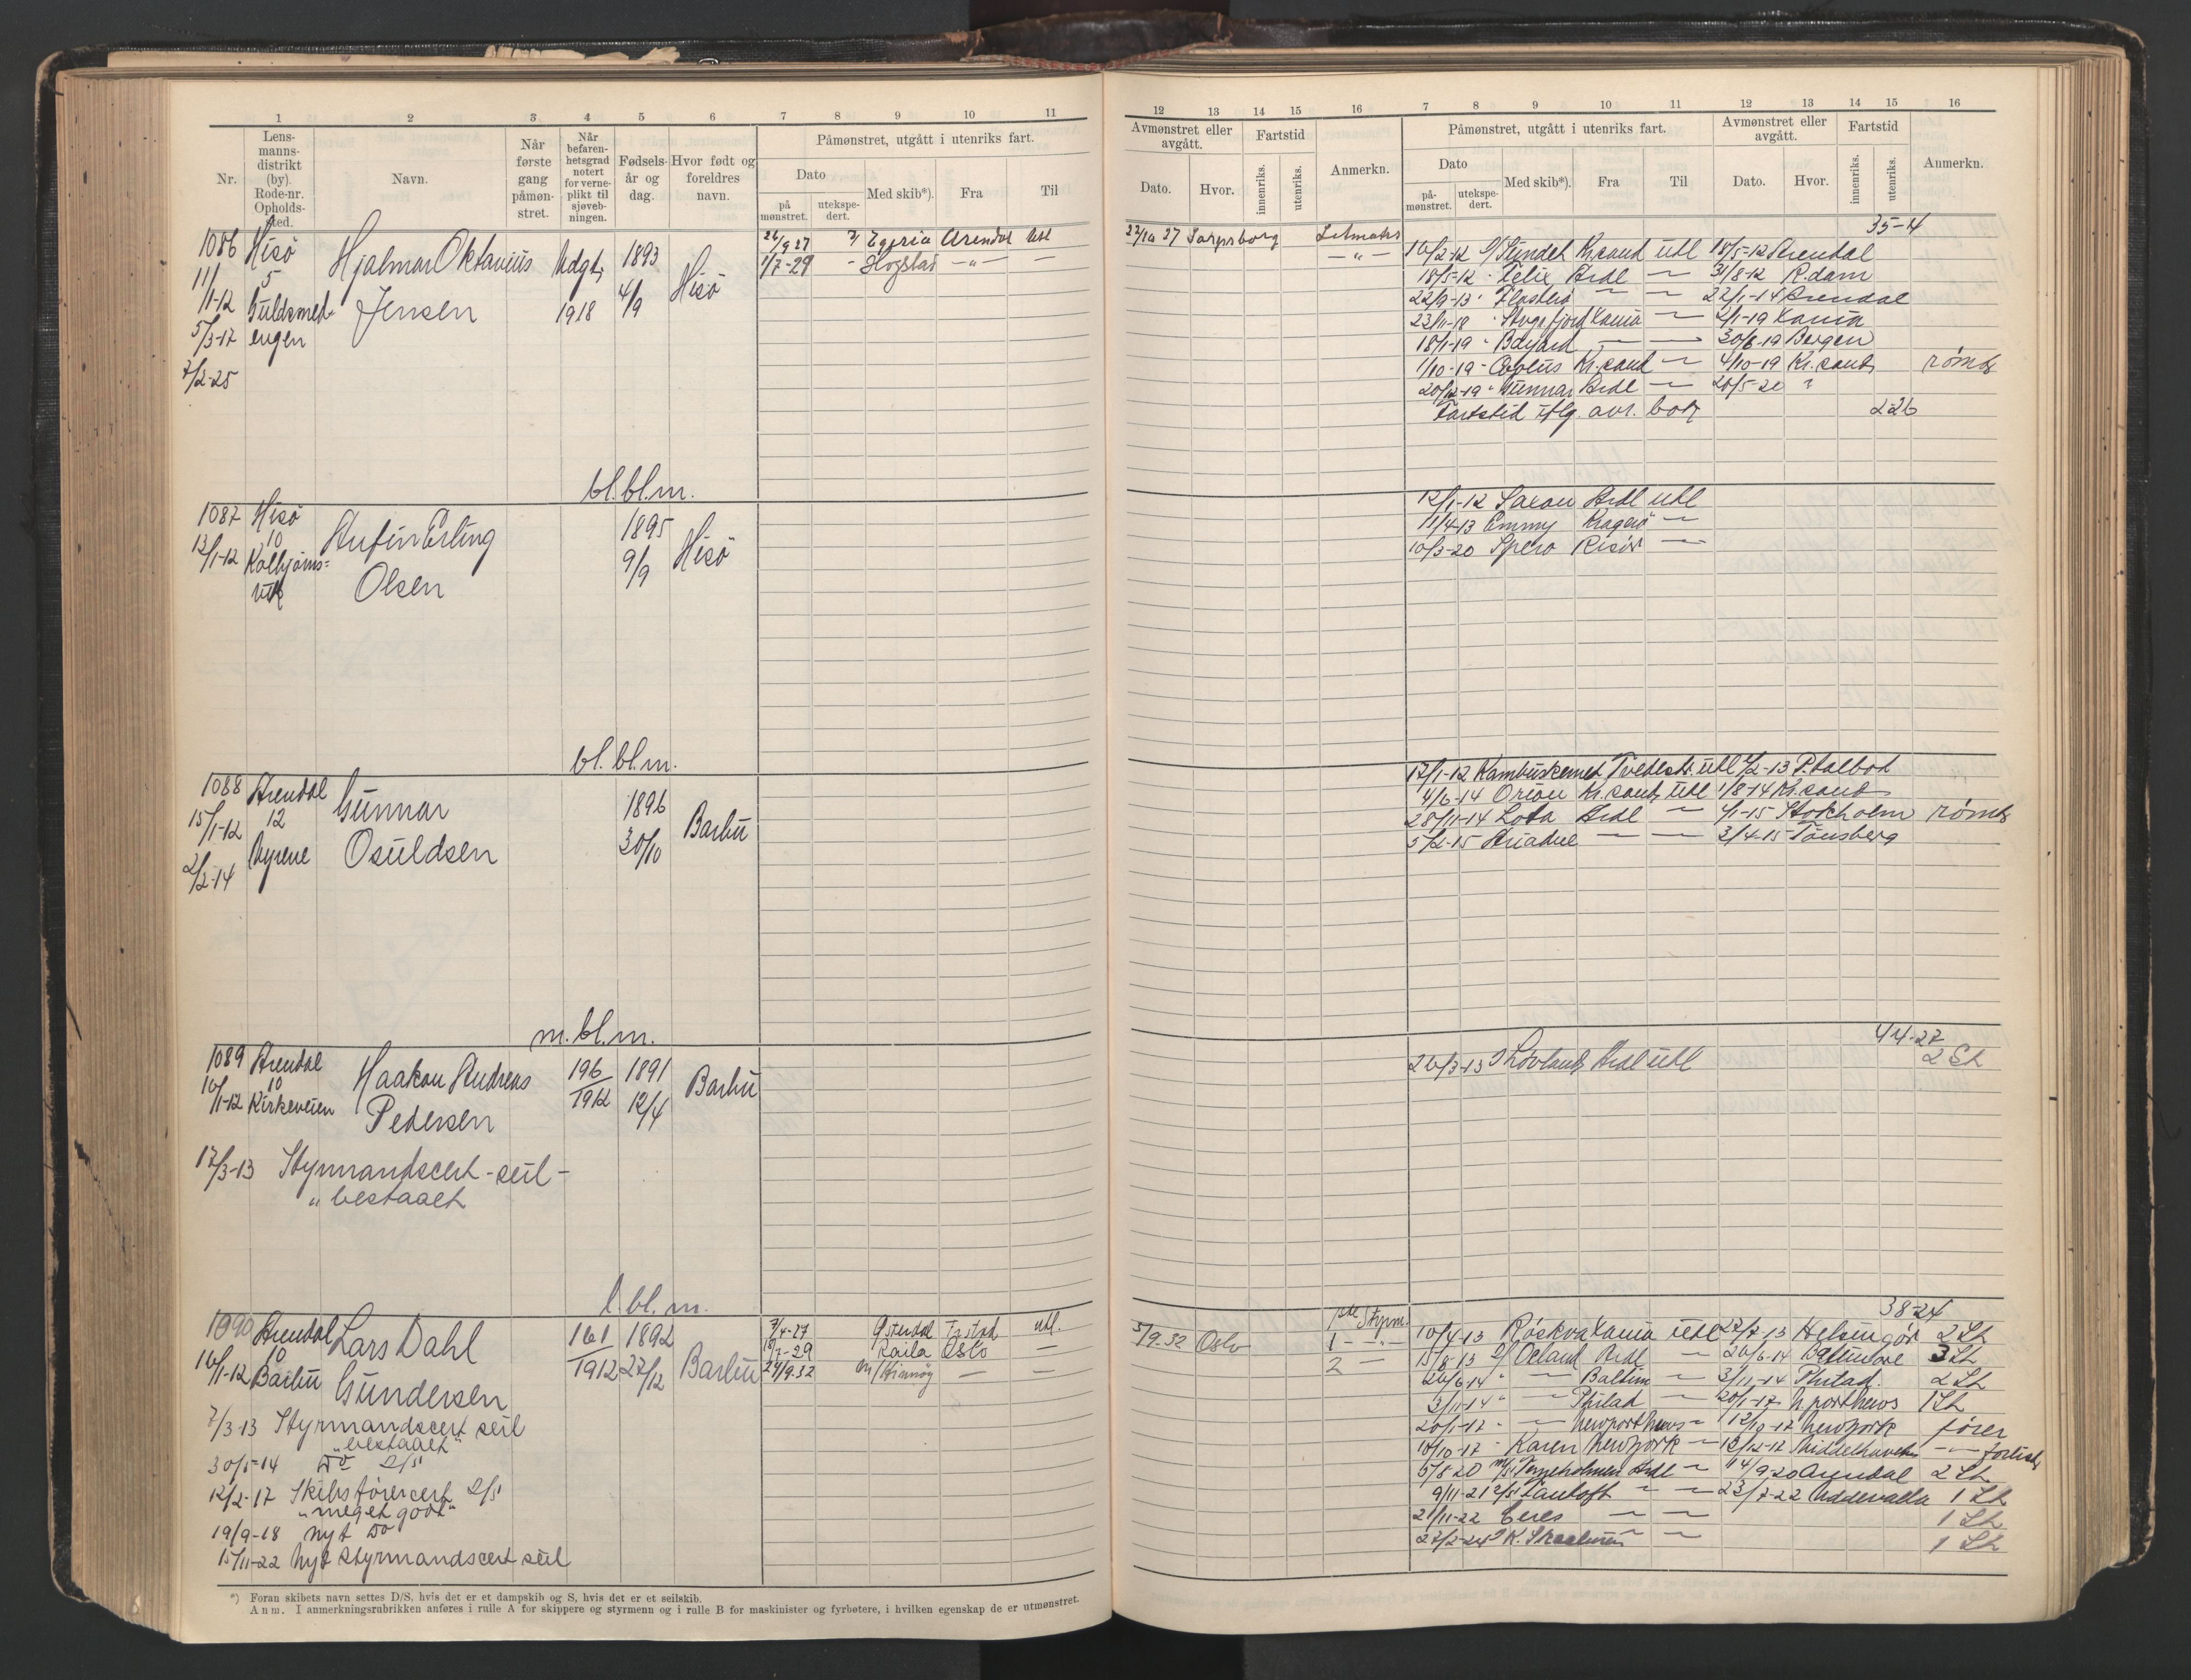 1 2 3 4 5 6 7 8 9 10 11
Nr.
Lens-
manns-
distrikt
(by).
Rode-nr.
Opholds-
sted.
Navn.
Når
første
gang
påmøn-
stret.
Når
befaren-
hetsgrad
notert
for verne-
plikt til
sjøveb-
ningen.
Fødsels-
år og
dag.
Hvor født og
foreldres
navn.
Påmønstret, utgått i utenriks fart.
Dato
på
mønstret.
utekspe-
dert.
Med skib*).
Fra
Til
12 13 14 15 16 7 8 9 10 11 12 13 14 15 16
Avmønstret eller
avgått.
Dato.
Hvor.
Fartstid
innenriks.
utenriks.
Anmerkn.
Påmønstret, utgått i utenriks fart.
Dato
på-
mønstret.
utekspe-
dert.
Med skib*).
Fra
Til
Avmønstret eller
avgått.
Dato.
Hvor.
Fartstid
innenriks.
utenriks.
Anmerkn.
1086 Hisö Hjalmar Oktavius Udgt. 1893 Hisö
11/1-12 5 Jensen 1918 4/9
Guldsmed-
engen
5/3-17
7/2-25
26/9 27 Egeria Arendal utl
1/7-29 Hogstad — " — —
22/10 27 Sarpsborg Letmatr
— " —
35-4
16/2-12 Sundet Kr.sand utl 18/5-12 Arendal
18/5-12 Felix Ardl — 31/8-12 R.dam
22/9-13 Flosterö — — 22/1-14 Arendal
23/11-18 Kania — 2/1-19 Kania
18/1-19 Bayard — — 30/6-19 Bergen
1/10-19 Kr.sand — 4/10-19 Kr.sand rømt
20/12-19 Gunnar Ardl — 20/5-20 "
Fartstid iflg. avr. bok 226
bl. bl. m.
1087 Hisö Anfin Erling 1895 Hisö
13/1-12 10 Olsen 9/9
Kolbjørns-
vik
12/1-12 Saxon Ardl utl
11/4-13 Emmy Kragerö —
10/3-20 Spero Risör —
bl. bl. m.
1088 Arendal Gunnar 1896 Barbu
15/1-12 12 Osuldsen 30/10
Myrene
2/2-14
12/1-12 Kambuskenet Tvedestr. utl 4/2-13 P.talbot
4/6-14 Orion Kr.sand utl 1/8-14 Kr.sand
28/11-14 Lota Ardl — 4/1-15 Stokholm rømt
5/2-15 Ariadne — — 3/4-15 Tönsberg
m. bl. m.
1089 Arendal Haakon Andreas 196 1891 Barbu
16/1-12 10 Pedersen 1912 12/4
Kirkeveien
17/3-13 Styrmandscert - seil -
" bestaaet
44-27
26/3-13 Lovland Ardl utl 2 St
l. bl. m.
1090 Arendal Lars Dahl 161 1892 Barbu
16/1-12 10 Gundersen 1912 27/12
Barbu
7/3-13 Styrmandscert seil
"bestaaet"
30/5-14 Do D/S
12/2-17 Skibsförercert D/S
"meget godt"
19/9-18 nyt Do
15/11-22 Nyt Styrmandscert seil
7/4-27 Tystad utl.
18/7-29 Kaila Oslo —
24/9.32 M/Hinnöy — —
5/9.32 Oslo
1ste Styrm.
1 — " —
2 —
38-24
10/4-13 Röskva Kania utl 27/7-13 Helsingör 2 St
15/8-13 D/ Öcland Ardl — 26/6-14 Baltimore 3 St
26/6-14 " — Baltim — 3/11-14 Philad. 2 St
3/11-14 " — Philad — 20/1-17 N.portnews 1 St
20/1-17 - — Newportnews - 12/10-17 Newyork förer
18/10-17 - Karen Newyork — 13/12-17 Middelhavet — " — forlist
5/8 20 M/S Ardl - 14/9.20 Arendal 2 St
9/11-21 D/S Tautoft - — 23/7-22 Uddevalla 1 St
21/11-22 Ceres — — 1 St
27/2-24 K. Skaaluren — — 1 St
*) Foran skibets navn settes D/S, hvis det er et dampskib og S, hvis det er et seilskib.
Anm. I anmerkningsrubrikken anføres i rulle A for skippere og styrmenn og i rulle B for maskinister og fyrbøtere, i hvilken egenskap de er utmønstret.